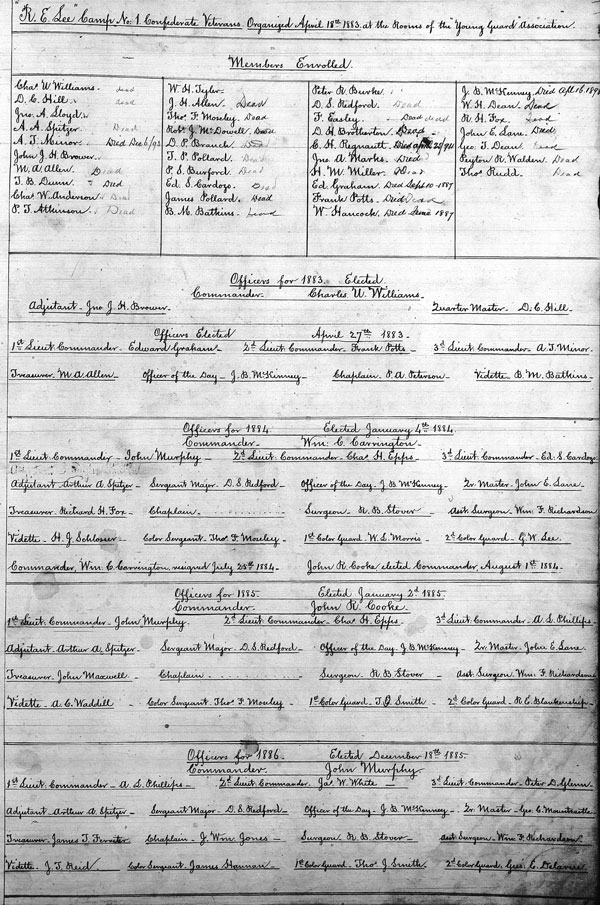 "R. E. Lee" Camp No. 1. Confederate Veterans. Organized April 18th 1883. at the Rooms of the "Young Guard" Association.
Members Enrolled.
Chas. U. Williams. dead
D. C. Hill. dead
Jno. A. Sloyd.
A. A. Spitzer. Dead
A. T. Minor. Died Dec 6/93
John J. H. Brower.
M. A. Allen Dead
T. B. Dunn - Died
Chas. W. Anderson Dead
P. T. Atkinson Dead
W. H. Tyler.
J. H. Allen. Dead
Thos. F. Moseley Dead
Robt. J. McDowell, Dead
D. P. Branch Dead
T. P. Pollard. Dead
P. S. Burford. Dead
Ed. S. Cardozo. Dead
James Pollard. Dead
B. M. Batkins.
Peter R. Burke.
D. S. Redford. Dead
F. Easley - Dead
D. H. Brotherton Dead
C. H. Regnault Died April
Jno. A. Marks. Died
H. M. Miller. Dead
Ed. Graham Died Sept. 10 1887
Frank Potts - Died Dead
W. Hancock. Died 1887
J. B. McKenney, Died Apl. 16 189
W. H. Dean Dead
R. H. Fox. Dead
John E. Lane. Dead
Geo. T. Dean. Dead
Peyton R. Walden Dead
Thos. Rudd. Dead
Officers for 1883. Elected
Commander. Charles U. Williams.
Adjutant - Jno J. H. Brower. Quarter Master - D. C. Hill.
Officers Elected April 27th 1883.
1st Lieut. Commander. Edward Graham - 2d Lieut. Commander - Frank Potts - 3d Lieut. Commander - A. T. Minor.
Treasurer. M. A. Allen. Officer of the Day - J. B. McKenney - Chaplain. P. A. Peterson - Vidette - B. M. Batkins -
Officers for 1884. Elected January 4th 1884.
Commander - Wm. C. Carrington.
1st Lieut. Commander - John Murphy - 2d Lieut. Commander - Chas. H. Epps. 3d Lieut. Commander - Ed. S. Cardozo
Adjutant - Arthur A. Spitzer - Sergeant Major. D. S. Redford - Officer of the Day - J. B. McKenney - Qr. Master. John E. Lane.
Treasurer. Richard H. Fox - Chaplain Surgeon - R. B. Stover - Asst. Surgeon. Wm. F. Richardson
Vidette - H. J. Schloser - Color Sergeant. Thos. F. Moseley - 1st Color Guard - W. L. Morris - 2d Color Guard - G. W. Lee.
Commander, Wm. C. Carrington, resigned July 25th 1884. John R. Cooke elected Commander, August 1st 1884.
Officers for 1885. Elected January 2d 1885.
Commander. John R. Cooke.
1st Lieut. Commander - John Murphy. 2d Lieut. Commander - Chas. H. Epps. 3d Lieut. Commander - A. L. Phillips.
Adjutant - Arthur A. Spitzer - Sergeant Major - D. S. Redford - Officer of the Day. J. B. McKenney - Qr. Master. John E. Lane
Treasurer. John Maxwell - Chaplain Surgeon - R. B. Stover - Asst. Surgeon. Wm. F. Richardson
Vidette - A. C. Waddill - Color Sergeant. Thos. F. Moseley - 1st Color Guard - T. J. Smith - 2d Color Guard - R. E. Blankenship -
Officers for 1886. Elected December 18th 1885.
Commander. John Murphy.
1st Lieut. Commander - A. L. Phillips - 2d Lieut. Commander Jas. W. White - 3d Lieut. Commander - Peter D. Glenn.
Adjutant - Arthur A. Spitzer - Sergeant Major - D. S. Redford - Officer of the Day - J. B. McKenney - Qr. Master - Geo. C. Mountcastle
Treasurer. James T. Ferriter - Chaplain - J. Wm. Jones - Surgeon - R. B. Stover - Asst. Surgeon - Wm. F. Richardson
Vidette. J. T. Reid - Color Sergeant. James Hannan - 1st Color Guard - Thos. J. Smith - 2d Color Guard. Geo. C. Delarue